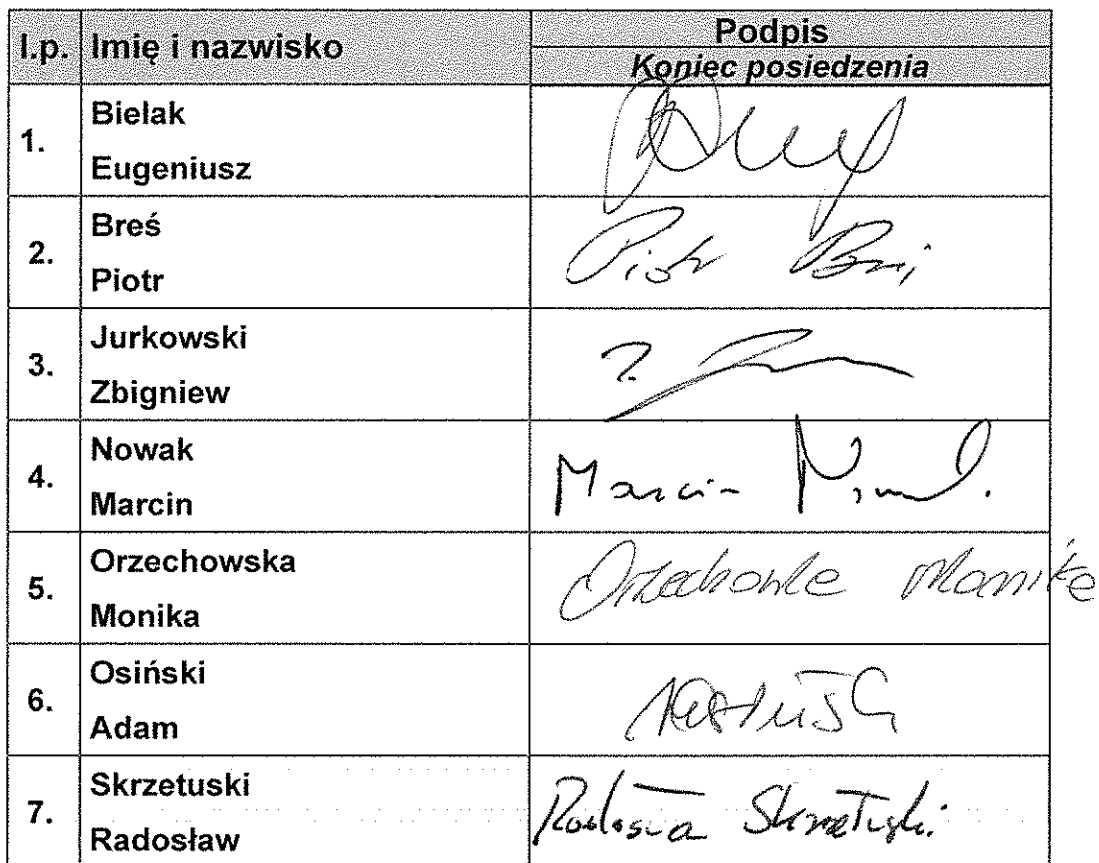 l.p. Imię i nazwisko Podpis
Koniec posiedzenia
1. Bielak
Eugeniusz
2. Breś
Piotr
Piotr
3. Jurkowski
Zbigniew
4. Nowak
Marcin
Marcin
5. Orzechowska
Monika
6. Osiński
Adam
7. Skrzetuski
Radosław
Skrzetuski